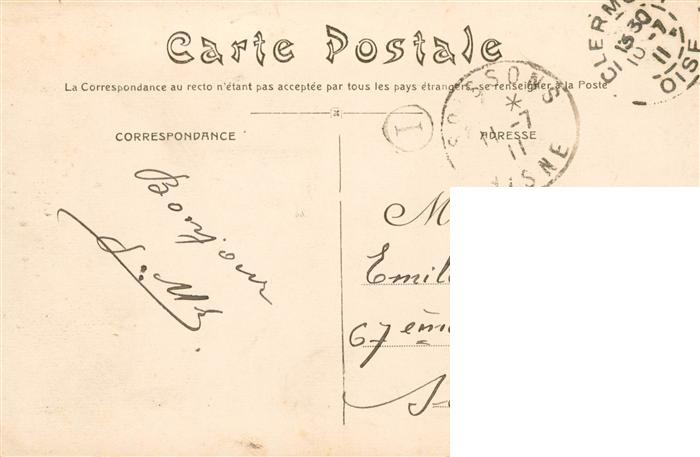 Carte Postale
La Correspondance au recto n'étant pas acceptée par tous les pays étrangers, se renseigner à la Poste
CORRESPONDANCE
ADRESSE
I
SOISSONS
* 
11-7
11
AISNE
CLERMO
13 30
10-7
11
OISE
Bonjour
M
Emil
67ème